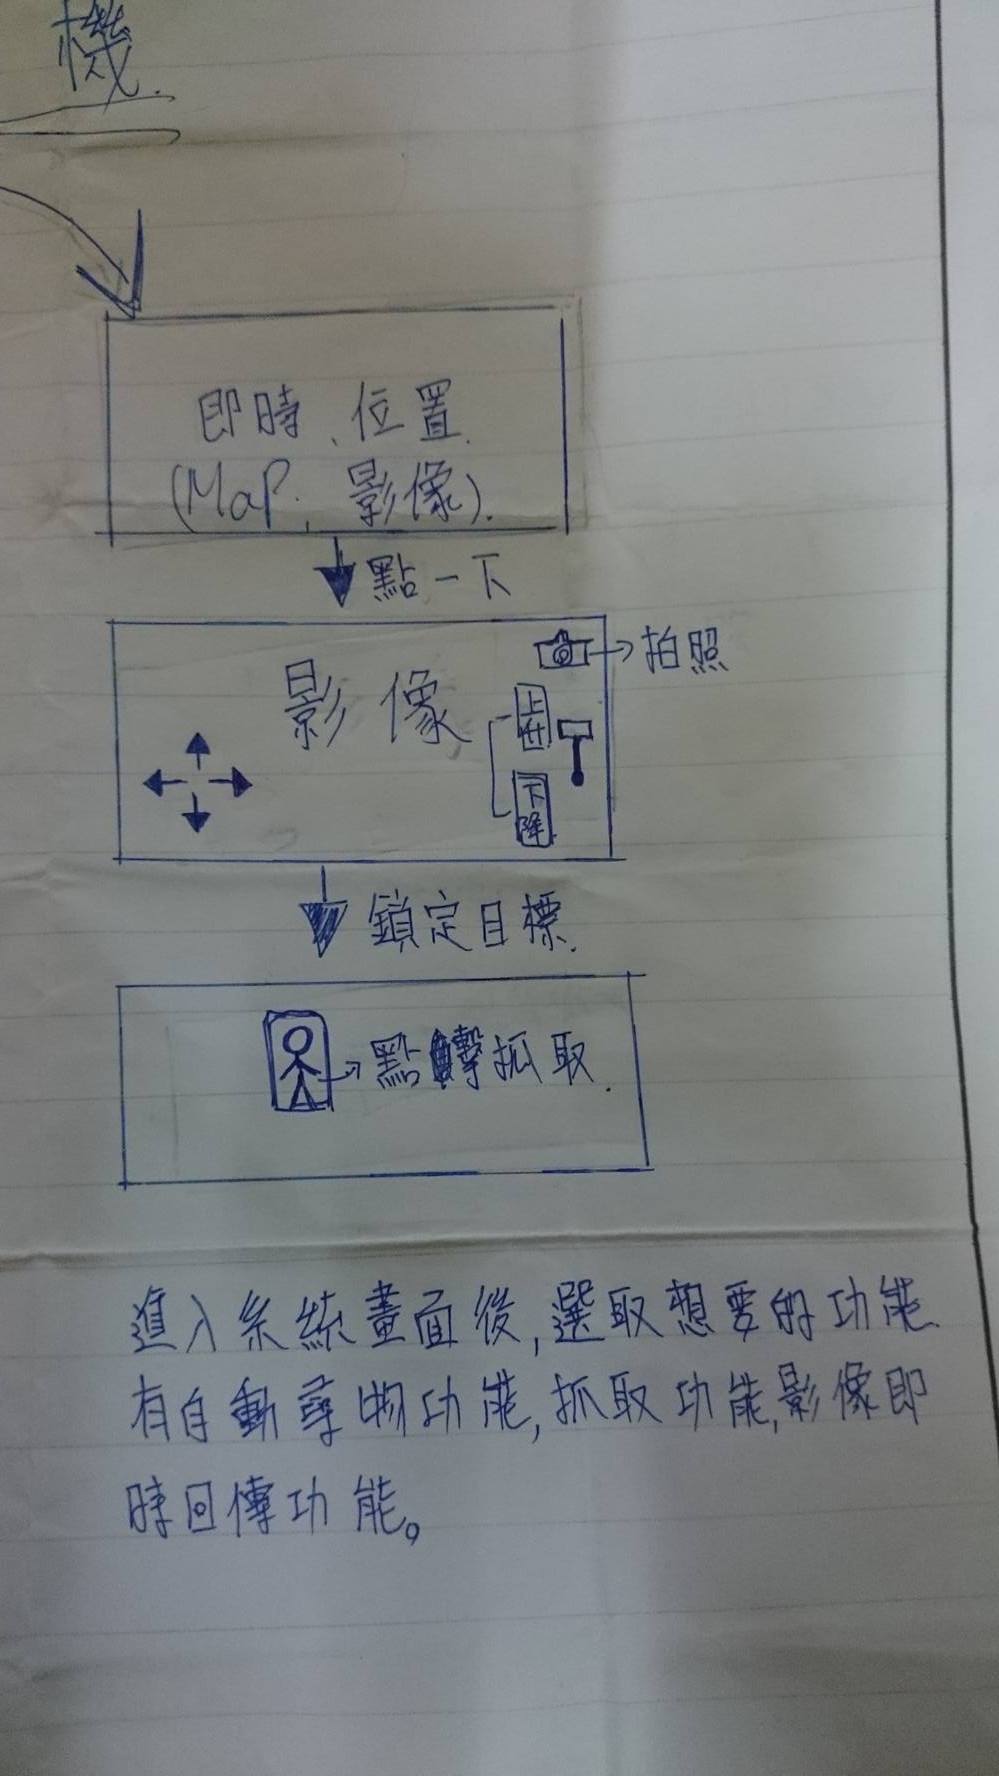 機
即時、位置
(MaP, 影像).
點一下
影像
拍照
上升
下降
鎖定目標.
點擊抓取.
進入系統畫面後,選取想要的功能.
有自動尋物功能,抓取功能,影像即
時回傳功能。